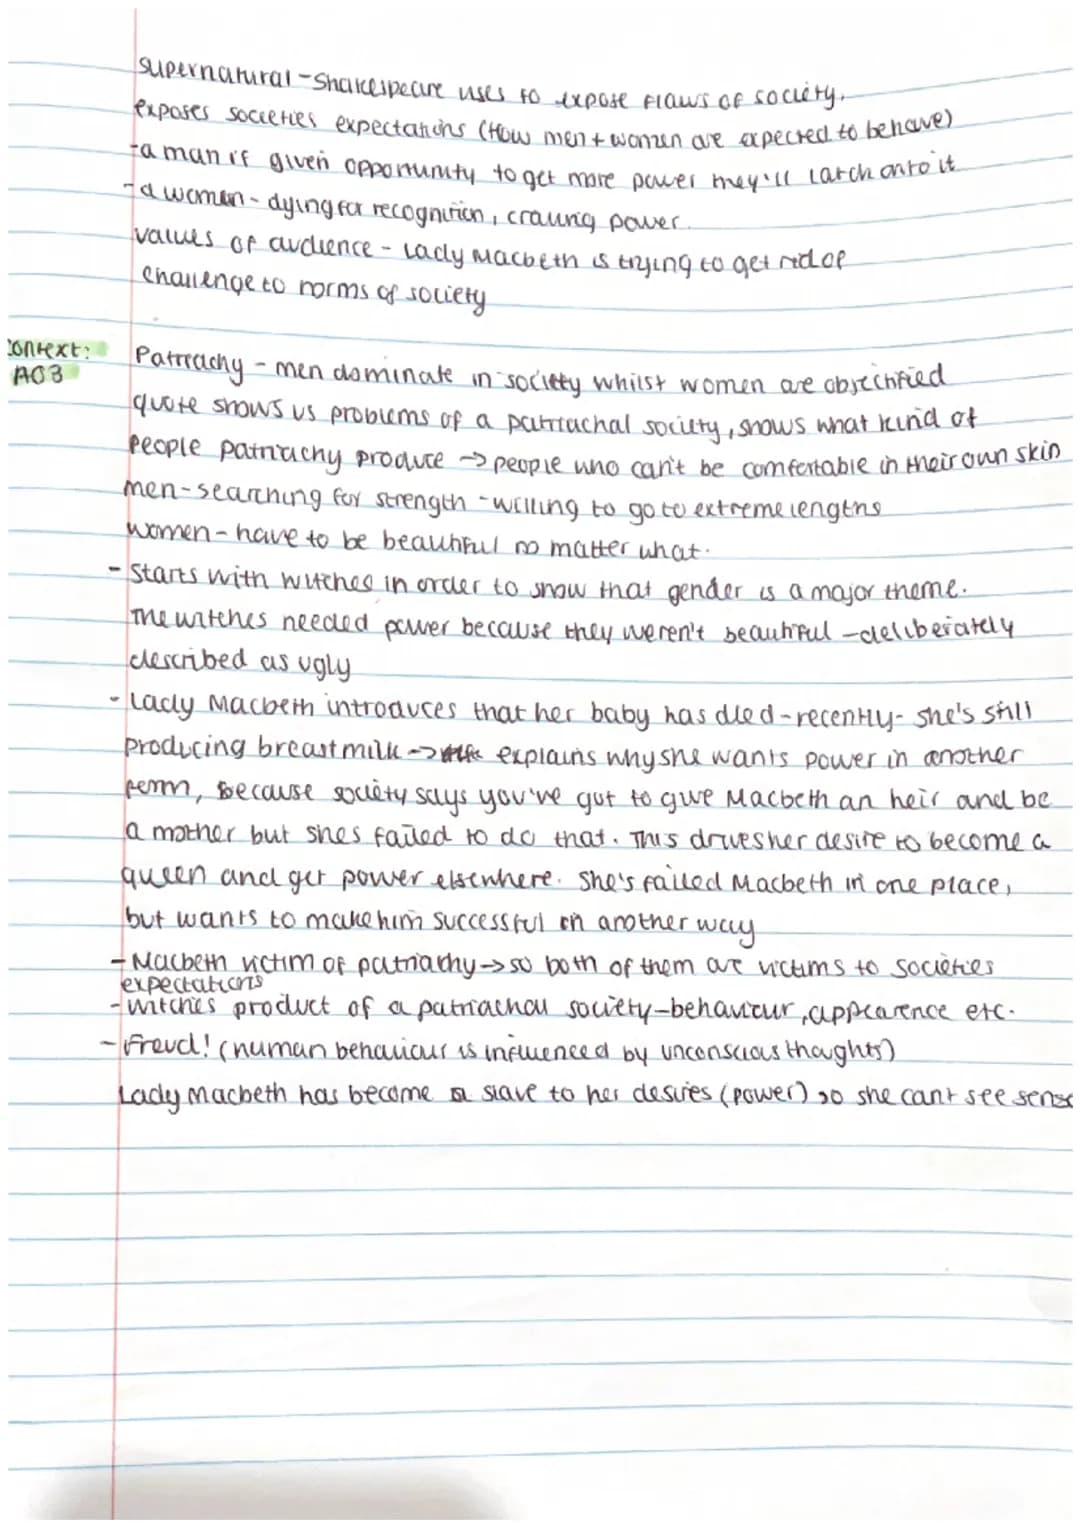 supernatural - Shakespeare uses to expose flaws of society.
exposes societies expectations (How men + women are expected to behave)
- a man if given opportunity to get more power they'll latch onto it
- a woman - dying for recognition, craving power.
values of audience - Lady Macbeth is trying to get rid of
challenge to norms of society
context:
AO3
Patriachy - men dominate in society whilst women are objectified
quote shows us problems of a patriachal society, shows what kind of
people patriachy produce → people who can't be comfortable in their own skin
men - searching for strength - willing to go to extreme lengths
women - have to be beautiful no matter what.
- Starts with witches in order to show that gender is a major theme.
The witches needed power because they weren't beautiful - deliberately
described as ugly
- Lady Macbeth introduces that her baby has died - recently - she's still
producing breastmilk → explains why she wants power in another
form, because society says you've got to give Macbeth an heir and be
a mother but shes failed to do that. This drives her desire to become a
queen and get power elsewhere. She's failed Macbeth in one place,
but wants to make him successful in another way
- Macbeth victim of patriachy → so both of them are victims to societies
expectations
- witches product of a patriachal society - behaviour, appearence etc.
- Freud! (human behaviour is influenced by unconscious thoughts)
Lady Macbeth has become a slave to her desires (power) so she can't see sense